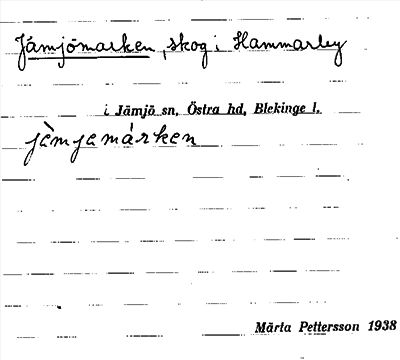 Jämjömarken, skog i Hammarby
i Jämjö sn, Östra hd, Blekinge l.
jämjamárken
Märta Pettersson 1938